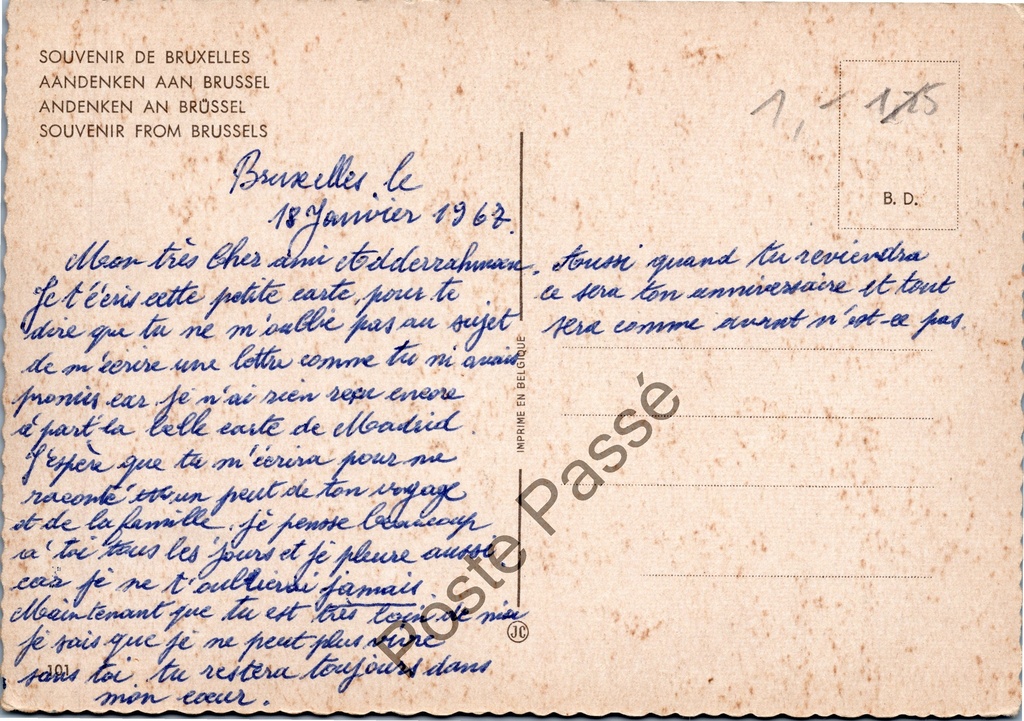 SOUVENIR DE BRUXELLES
AANDENKEN AAN BRUSSEL
ANDENKEN AN BRÜSSEL
SOUVENIR FROM BRUSSELS
Bruxelles, le
18 Janvier 1967.
Mon très Cher ami Adderrahman,
Je t'écris cette petite carte pour te
dire que tu ne m'oublie pas au sujet
de m'écrire une lettre comme tu m'avais
promis car je n'ai rien reçu encore
à part la belle carte de Madrid.
J'espère que tu m'écrira pour me
raconté un peut de ton voyage
et de la famille. je pensse beaucoup
a' toi tous les jours et je pleure aussi
car je ne t'oublierai jamais.
Maintenant que tu est très loin de moi
je sais que je ne peut plus vivre
sans toi, tu restera toujours dans
mon cœur.
Aussi quand tu reviendra
ce sera ton anniversaire et tout
sera comme avant n'est-ce pas.
1,- 1,25
B. D.
IMPRIME EN BELGIQUE
JC
101
Poste Passé